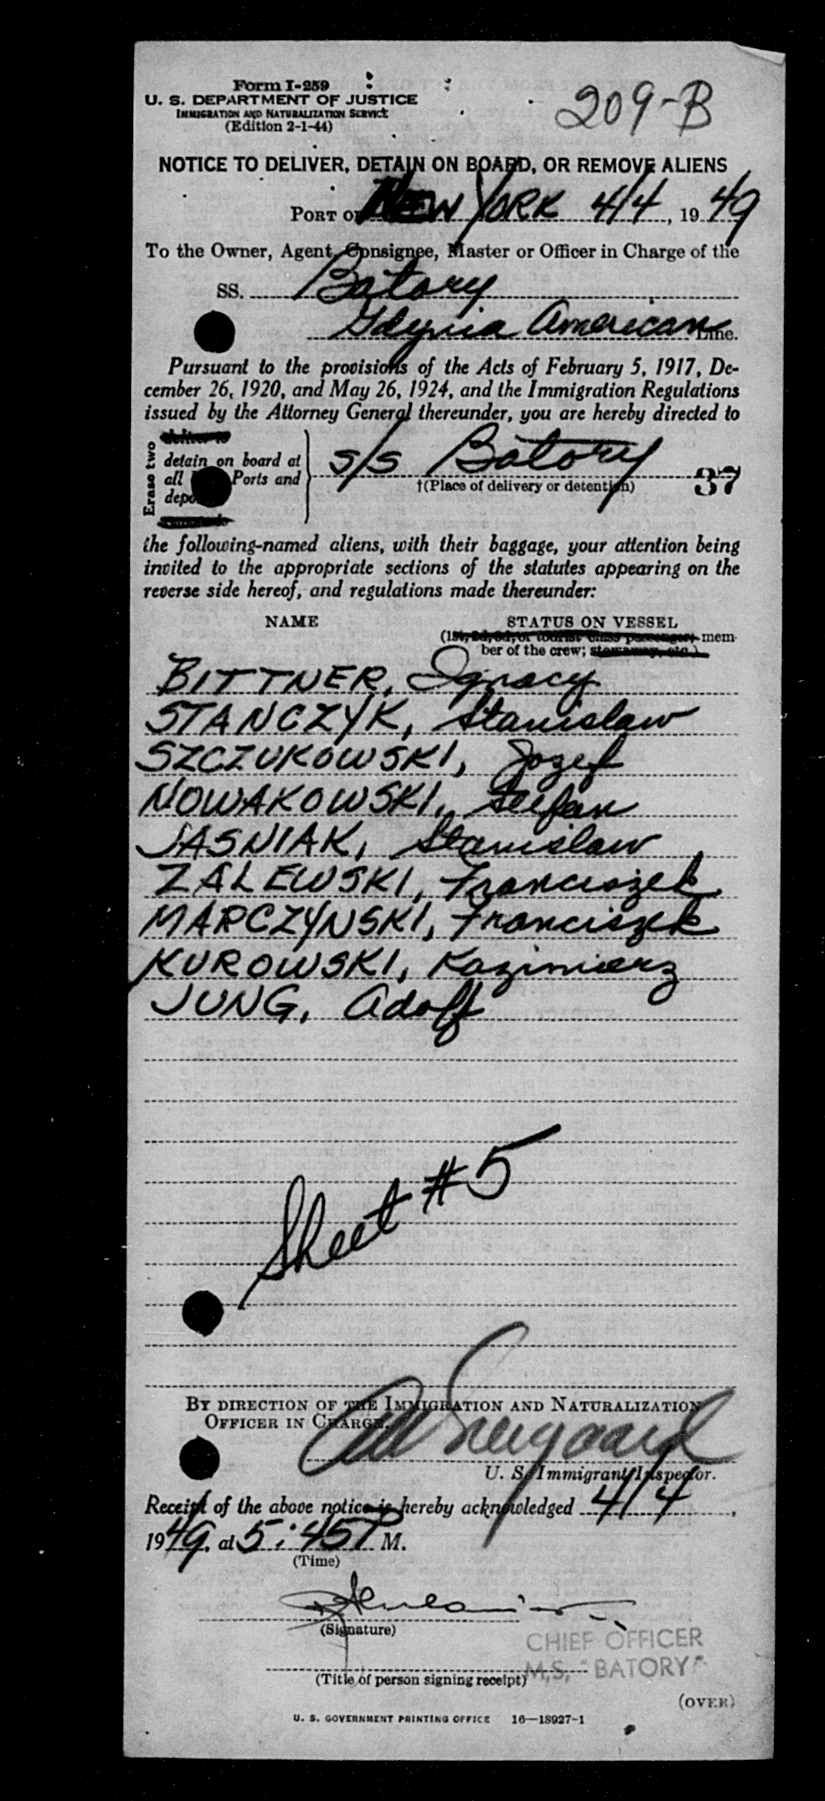 Form I-259
U. S. DEPARTMENT OF JUSTICE
IMMIGRATION AND NATURALIZATION SERVICE
(Edition 2-1-44)
209-B
NOTICE TO DELIVER, DETAIN ON BOARD, OR REMOVE ALIENS
PORT OF NEW YORK 4/4, 1949
To the Owner, Agent, Consignee, Master or Officer in Charge of the
SS. Batory
Gdynia American Line.
Pursuant to the provisions of the Acts of February 5, 1917, De-
cember 26, 1920, and May 26, 1924, and the Immigration Regulations
issued by the Attorney General thereunder, you are hereby directed to
Erase two
deliver to
detain on board at
all Ports and
s/s Batory
†(Place of delivery or detention)
37
the following-named aliens, with their baggage, your attention being
invited to the appropriate sections of the statutes appearing on the
reverse side hereof, and regulations made thereunder:
NAME STATUS ON VESSEL
(1st, 2d, 3d, or tourist class passenger; mem-
ber of the crew; stowaway, etc.)
BITTNER, Ignacy
STANCZYK, Stanislaw
SZCZUKOWSKI, Jozef
NOWAKOWSKI, Stefan
JASNIAK, Stanislaw
ZALEWSKI, Franciszek
MARCZYNSKI, Franciszek
KUROWSKI, Kazimierz
JUNG, Adolf
Sheet #5
BY DIRECTION OF THE IMMIGRATION AND NATURALIZATION
OFFICER IN CHARGE.
U. S. Immigrant Inspector.
Receipt of the above notice is hereby acknowledged 4/4,
1949, at 5:45 P M.
(Time)
(Signature)
CHIEF OFFICER
M.S. "BATORY"
(Title of person signing receipt)
(OVER)
U. S. GOVERNMENT PRINTING OFFICE 16—18927-1